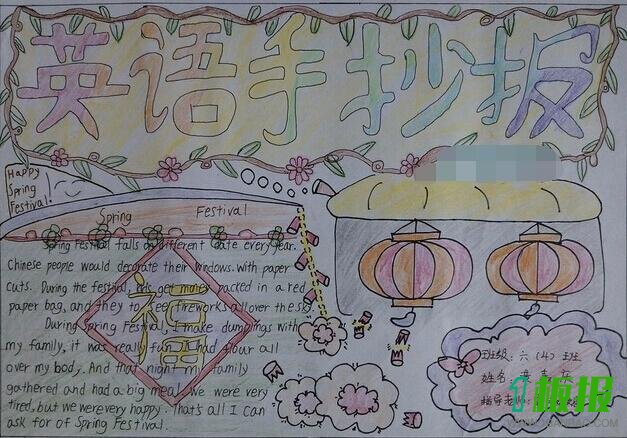 英语手抄报
Happy
Spring
Festival!
Spring Festival
Spring Festival falls on different date every year.
Chinese people would decorate their windows. With paper
cuts. During the festival, kids get money packed in a red
paper bag, and they to see fireworks all over the sky.
During Spring Festival, I make dumplings with
my family, it was really fun. I had flour all
over my body. And that night my family
gathered and had a big meal. We were very
tired, but we were very happy. That's all I can
ask for of Spring Festival.
福
班级：六（4）班
姓名
指导老师
板报